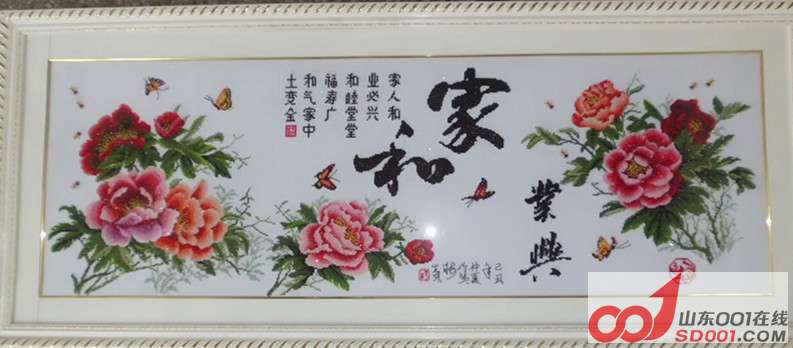 家和
業興
家人和
业必兴
和睦堂堂
福寿广
和气家中
土变金
己丑
山东001在线
SD001.com